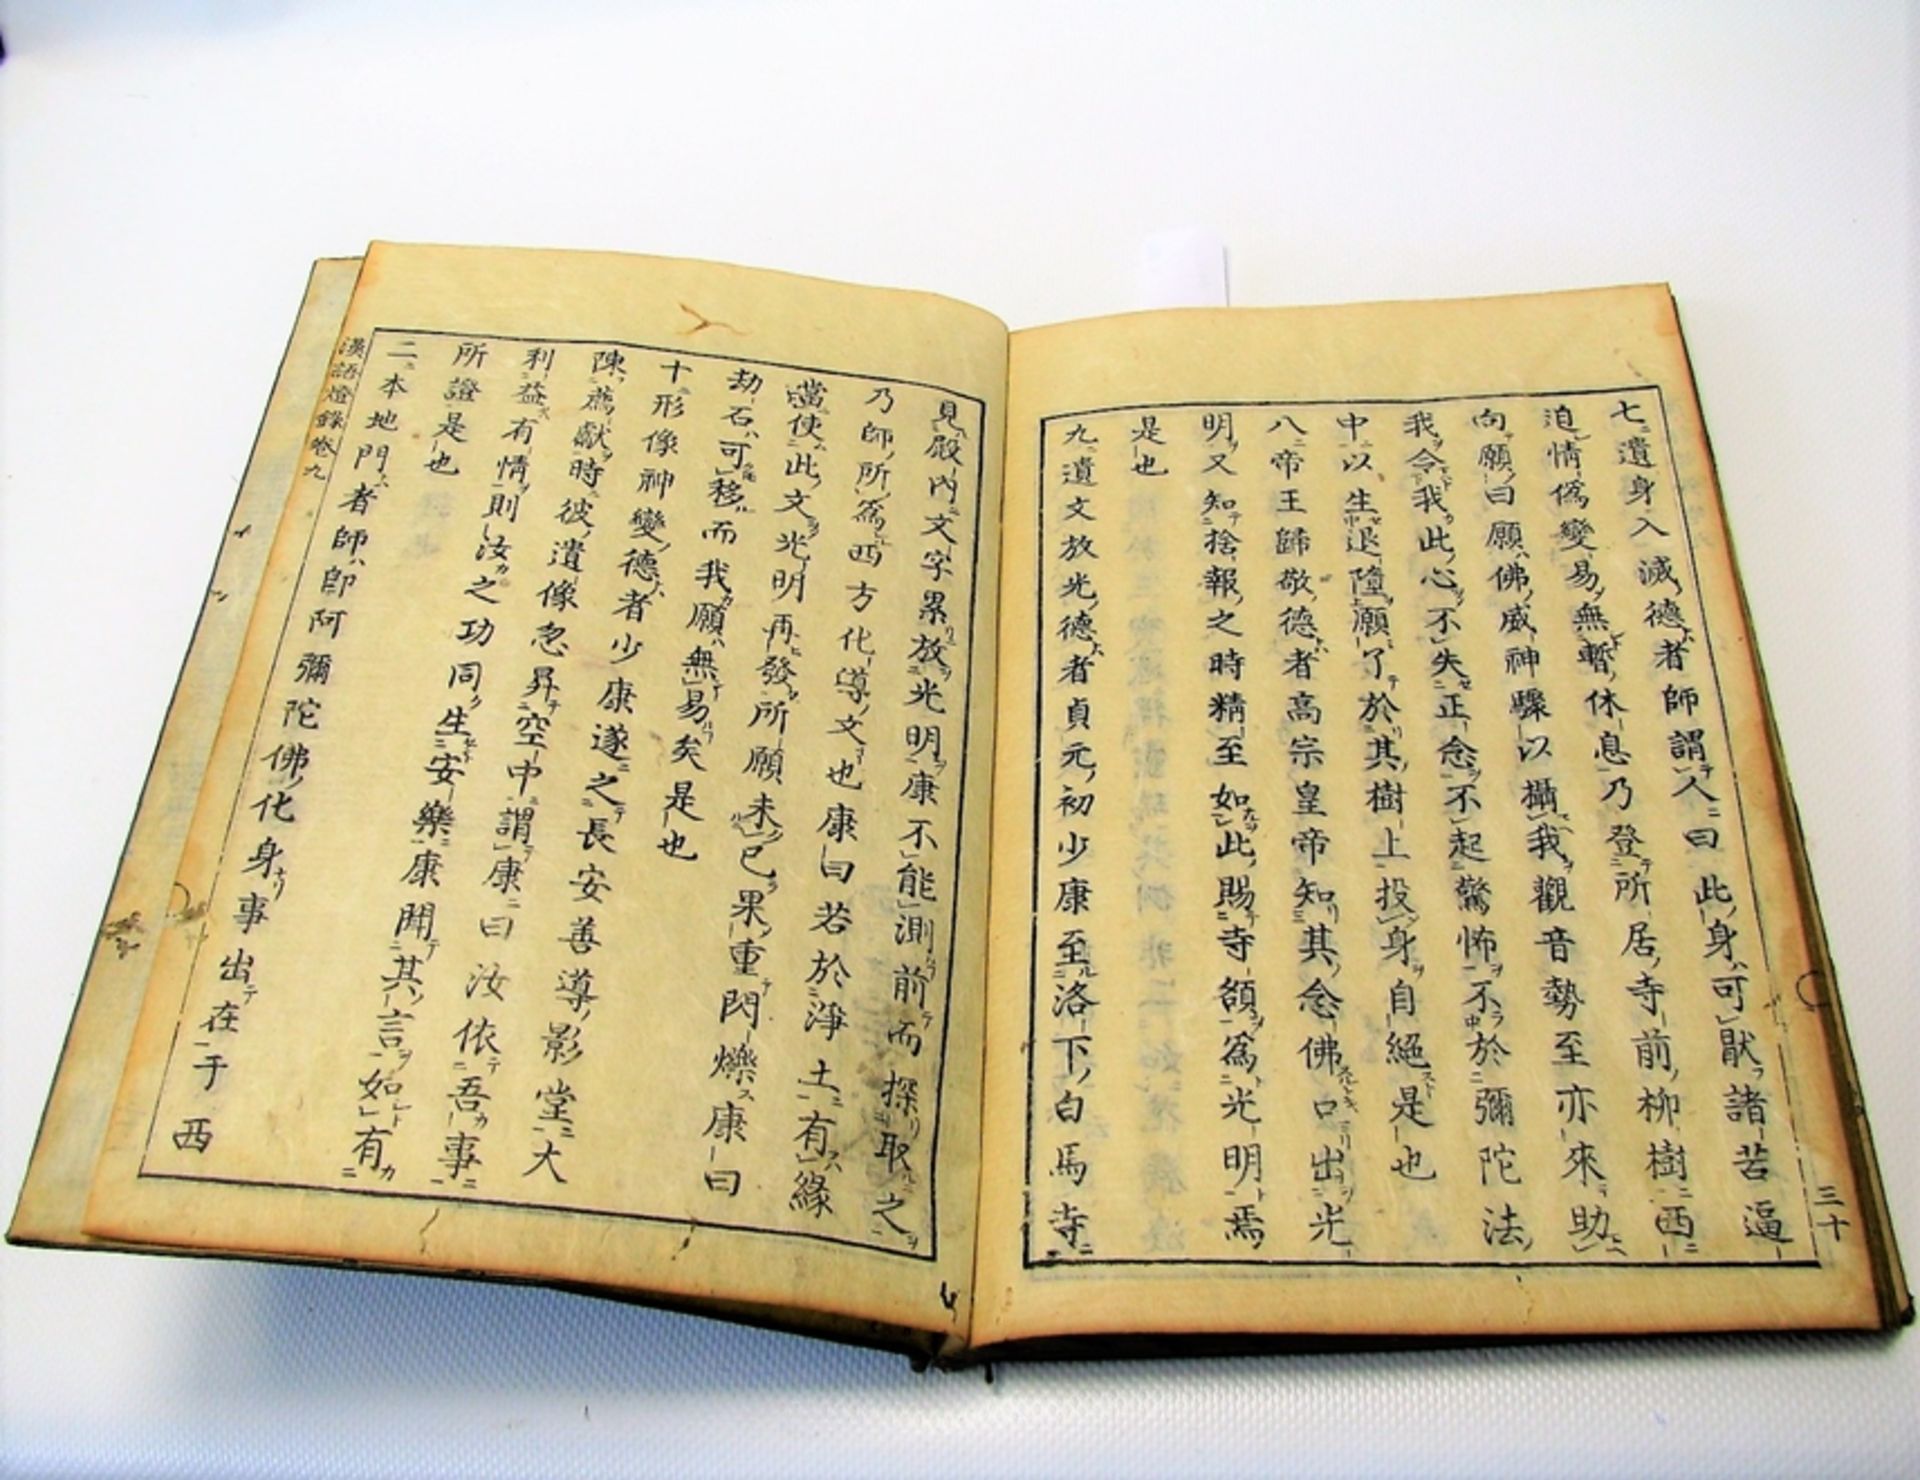 七遺身入滅德者師謂人曰此身可猒諸苦逼
迫情僞變易無暫休息乃登所居寺前柳樹西
向願曰願佛威神驟以攝我觀音勢至亦來助
我令我此心不失正念不起驚怖不於彌陀法
中以生退墮願了於其樹上投身自絕是也
八帝王歸敬德者高宗皇帝知其念佛口出光
明又知捨報之時精至如此賜寺額爲光明焉
是也
九遺文放光德者貞元初少康至洛下白馬寺
三十
見殿內文字累放光明康不能測前而探取之
乃師所爲西方化導文也康曰若於淨土有緣
當使此文光明再發所願未已果重閃爍康曰
劫石可移而我願無易矣是也
十形像神變德者少康遂之長安善導影堂大
陳薦獻時彼遺像忽昇空中謂康曰汝依吾事
利益有情則汝之功同生安樂康聞其言如有
所證是也
二本地門者師卽阿彌陀佛化身事出在于西
漢語燈錄卷九